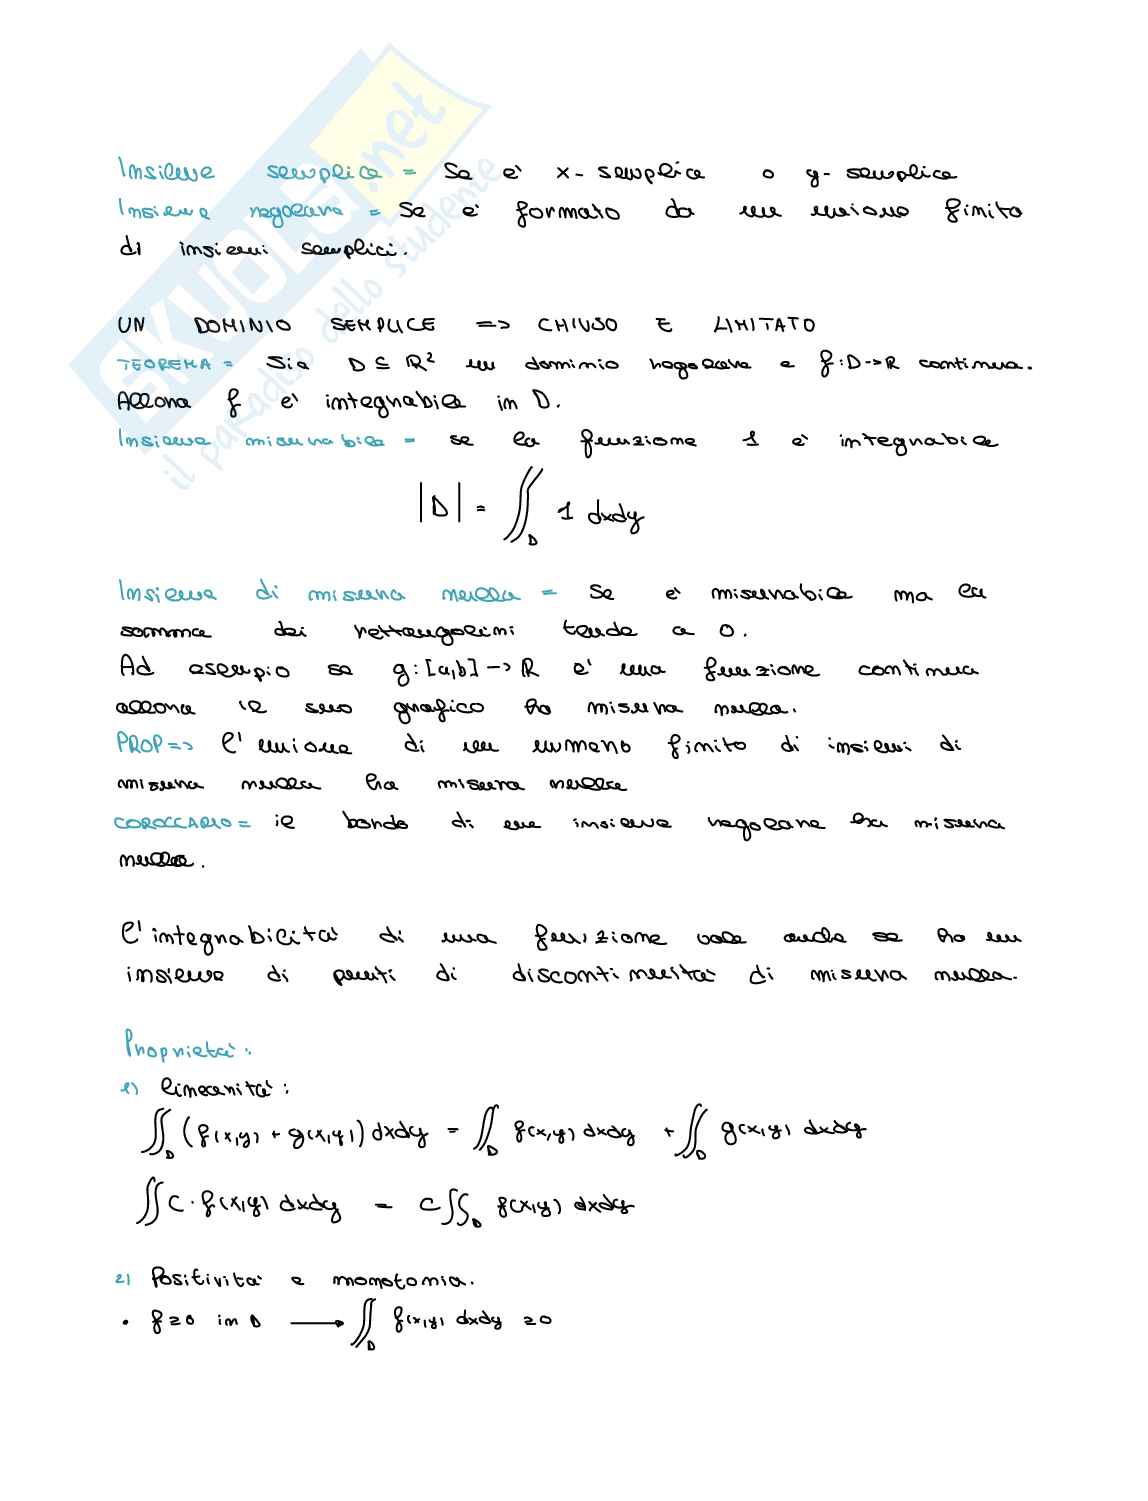 SKUOLA.net
il paradiso dello studente
Insieme semplice = Se è x-semplice o y-semplice
Insieme regolare = Se è formato da un unione finito
di insiemi semplici.
UN DOMINIO SEMPLICE => CHIUSO E LIMITATO
TEOREMA = Sia D ⊆ ℝ² un dominio regolare e f: D->ℝ continua.
Allora f è integrabile in D.
Insieme misurabile = se la funzione 1 è integrabile
|D| = ∬_D 1 dxdy
Insieme di misura nulla = Se è misurabile ma la
somma dei rettangolini tende a 0.
Ad esempio se g: [a,b] -> ℝ è una funzione continua
allora il suo grafico ha misura nulla.
PROP => l'unione di un numero finito di insiemi di
misura nulla ha misura nulla
COROLLARIO = il bordo di un insieme regolare ha misura
nulla.
l'integrabilità di una funzione vale anche se ho un
insieme di punti di discontinuità di misura nulla.
Proprietà:
1) linearità:
∬_D (f(x,y) + g(x,y)) dxdy = ∬_D f(x,y) dxdy + ∬_D g(x,y) dxdy
∬ c · f(x,y) dxdy = c ∬_D f(x,y) dxdy
2) Positività e monotonia.
• f ≥ 0 in D ⟶ ∬_D f(x,y) dxdy ≥ 0